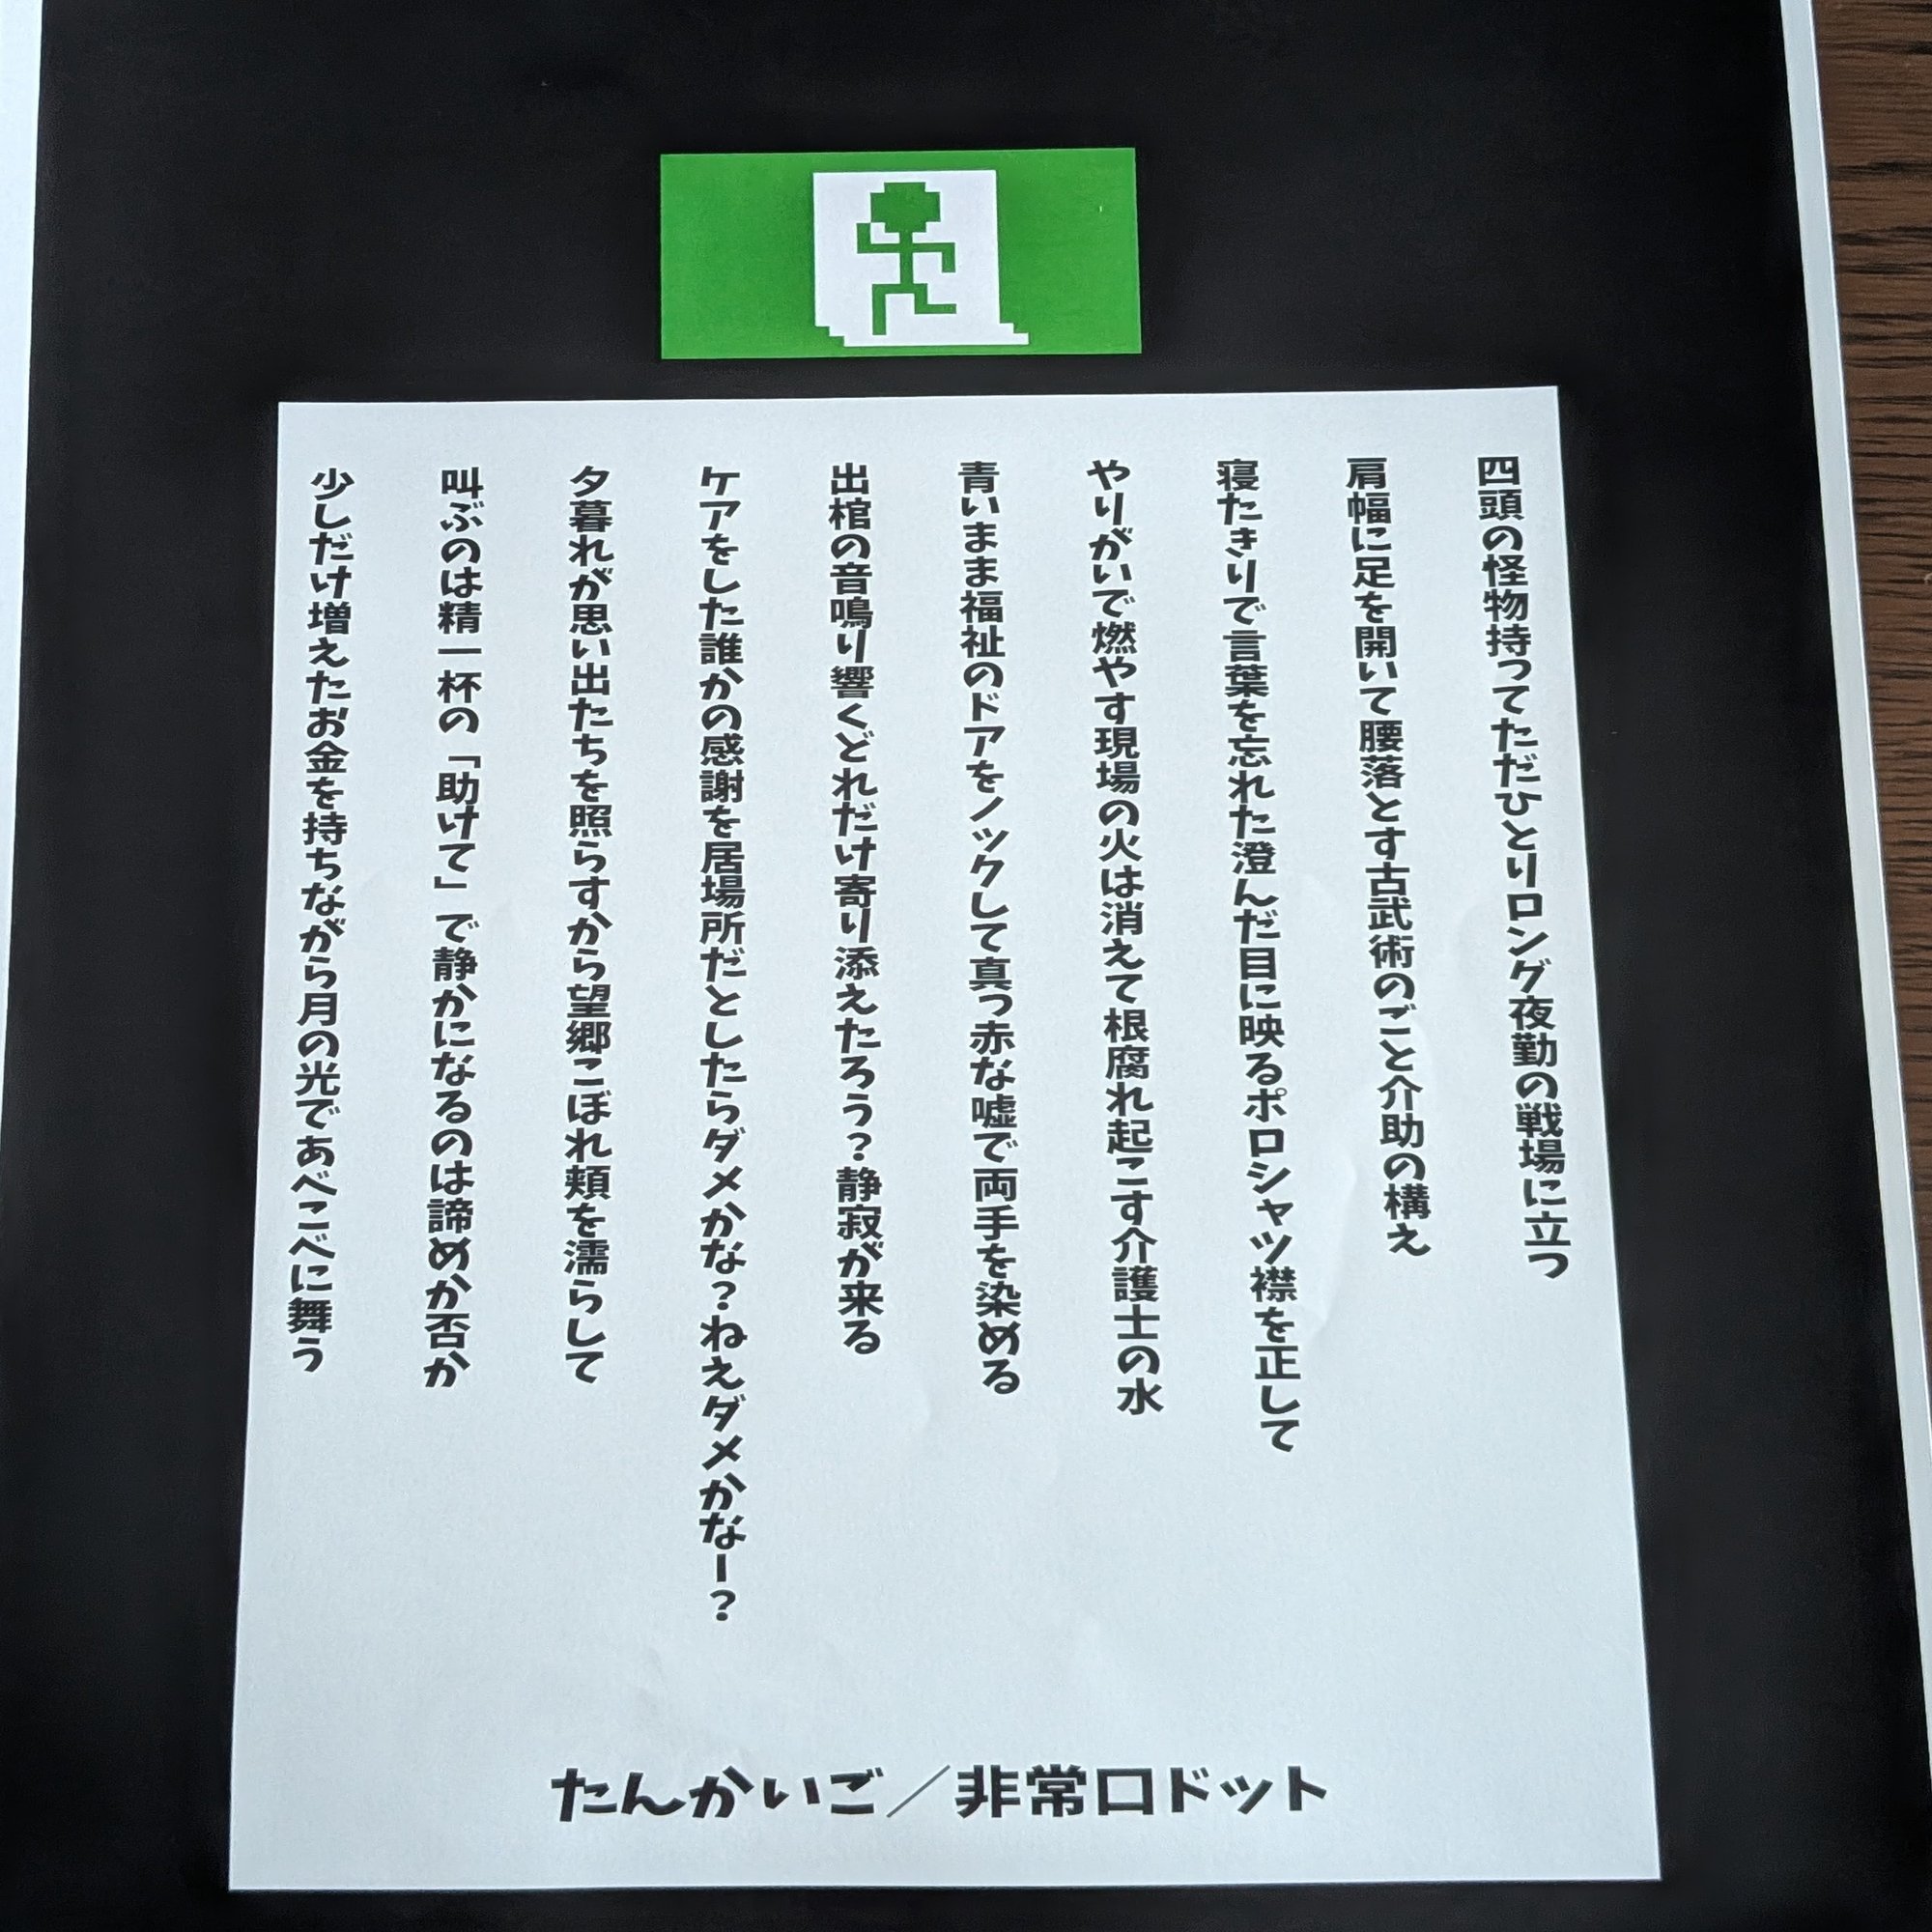 四頭の怪物持ってただひとりロング夜勤の戦場に立つ
肩幅に足を開いて腰落とす古武術のごと介助の構え
寝たきりで言葉を忘れた澄んだ目に映るポロシャツ襟を正して
やりがいで燃やす現場の火は消えて根腐れ起こす介護士の水
青いまま福祉のドアをノックして真っ赤な嘘で両手を染める
出棺の音鳴り響くどれだけ寄り添えたろう？静寂が来る
ケアをした誰かの感謝を居場所だとしたらダメかな？ねえダメかなー？
夕暮れが思い出たちを照らすから望郷こぼれ頬を濡らして
叫ぶのは精一杯の「助けて」で静かになるのは諦めか否か
少しだけ増えたお金を持ちながら月の光であべこべに舞う
たんかいご／非常口ドット